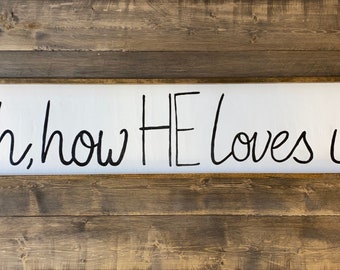 h, how HE loves